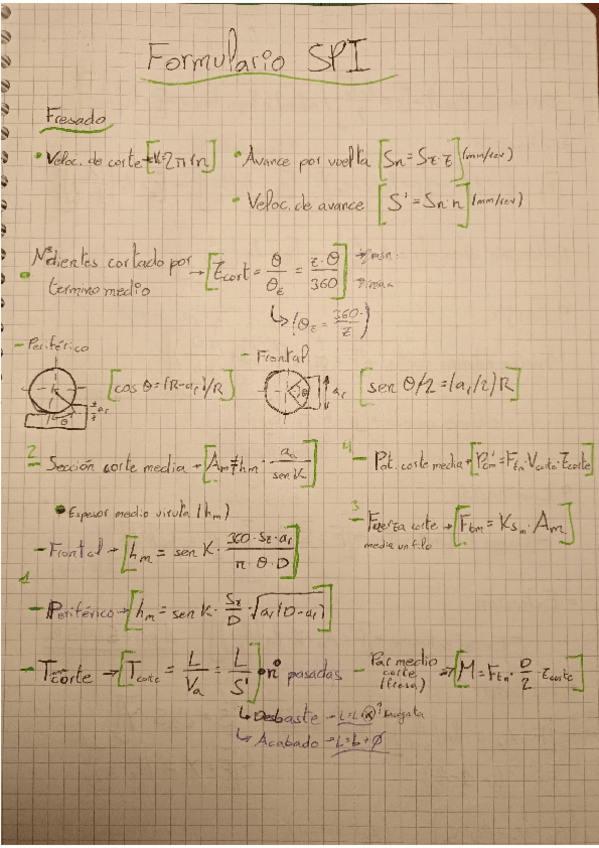 Formulario SPI
Fresado
• Veloc. de corte → [V=2πrn] • Avance por vuelta [Sn=Sz·z] (mm/rev)
• Veloc. de avance [S'=Sn·n] (mm/rev)
• Nº dientes cortado por termino medio → [Zcort = θ/θε = z·θ/360]
↳ (θε = 360·/z)
- Periférico
[cosθ=(R-ar)/R]
- Frontal
ar
[senθ/2=(ar/2)R]
2 - Sección corte media → [Am=hm · aa/sen K]
4 - Pot. corte media → [Pcm=Ftm·Vcorte·Zcorte]
• Espesor medio viruta (hm)
3 - Fuerza corte → [Ftm = Ksm·Am]
media un filo
- Frontal → [hm = sen K · 360·Sz·ar/π·θ·D]
1
- Periférico → [hm = sen K · Sz/D · √ar(D-ar)]
- Tcorte → [Tcorte = L/Va = L/S'] • nº pasadas
- Par medio corte (fresa) → [M=Ftm · D/2 · Zcorte]
↳ Desbaste → L=L
↳ Acabado → L=b+ø